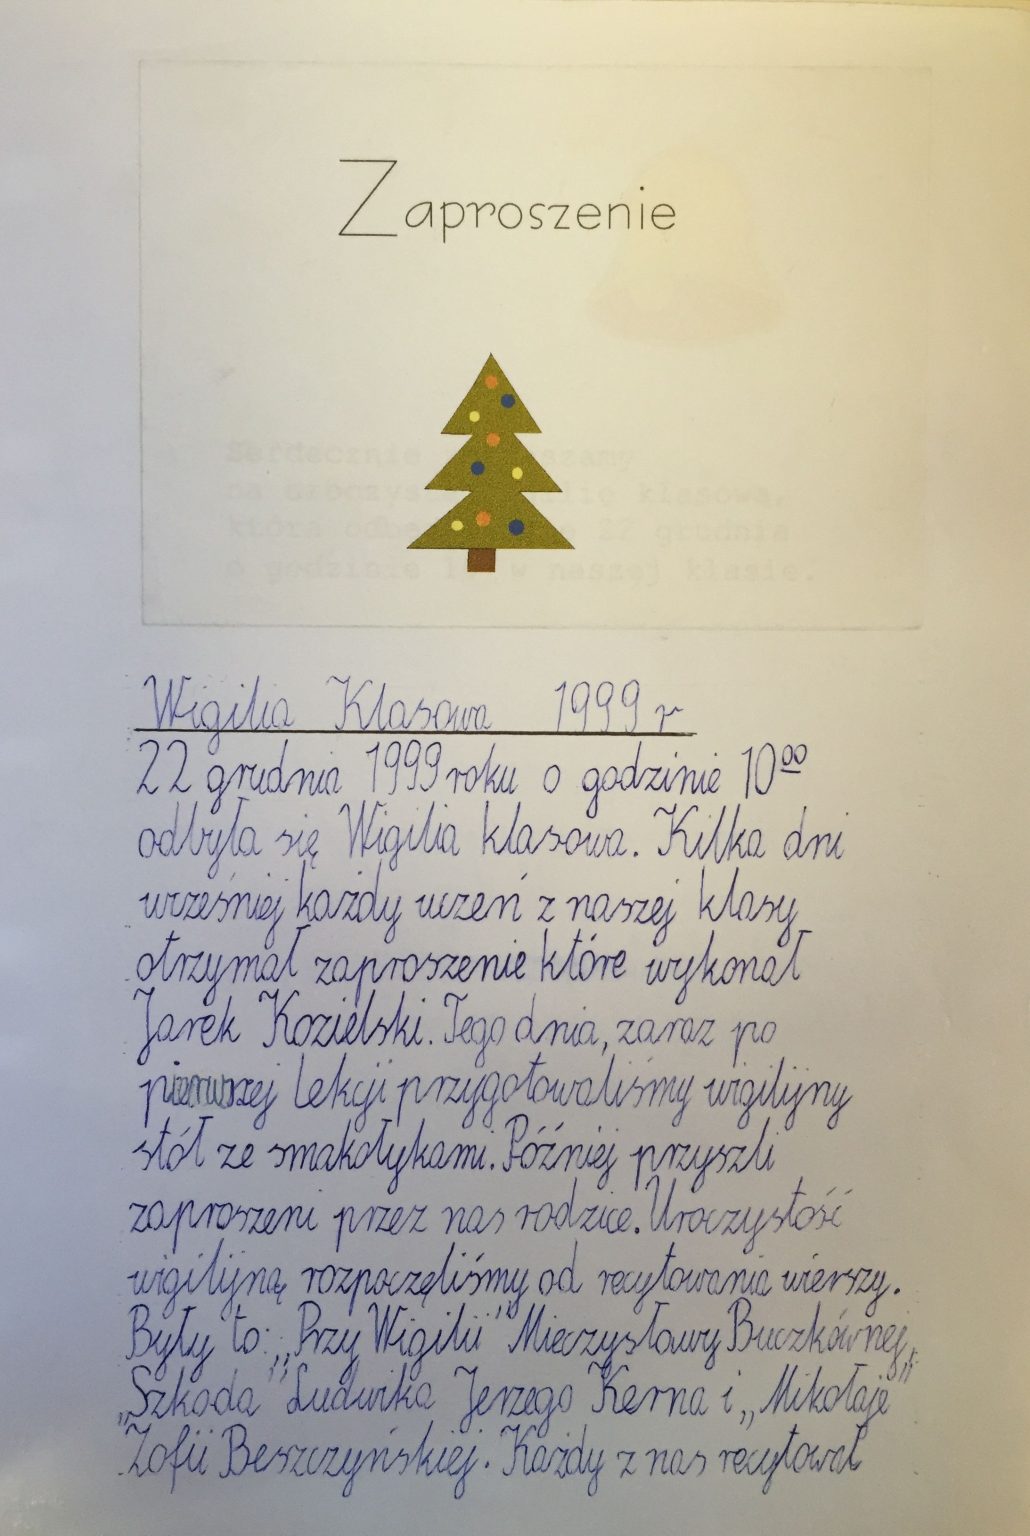 Zaproszenie
Serdecznie
na
która 22 grudnia
o godzinie w naszej klasie.
Wigilia Klasowa 1999 r
22 grudnia 1999 roku o godzinie 10⁰⁰
odbyła się Wigilia klasowa. Kilka dni
wrześniej każdy uczeń z naszej klasy
otrzymał zaproszenie które wykonał
Jarek Kozielski. Tego dnia, zaraz po
pierwszej lekcji przygotowaliśmy wigilijny
stół ze smakołykami. Później przyszli
zaproszeni przez nas rodzice. Uroczystość
wigilijną rozpoczęliśmy od recytowania wierszy.
Były to: „Przy Wigilii" Mieczysławy Buczkównej,
„Szkoda" Ludwika Jerzego Kerna i „Mikołaje"
Zofii Beszczyńskiej. Każdy z nas recytował